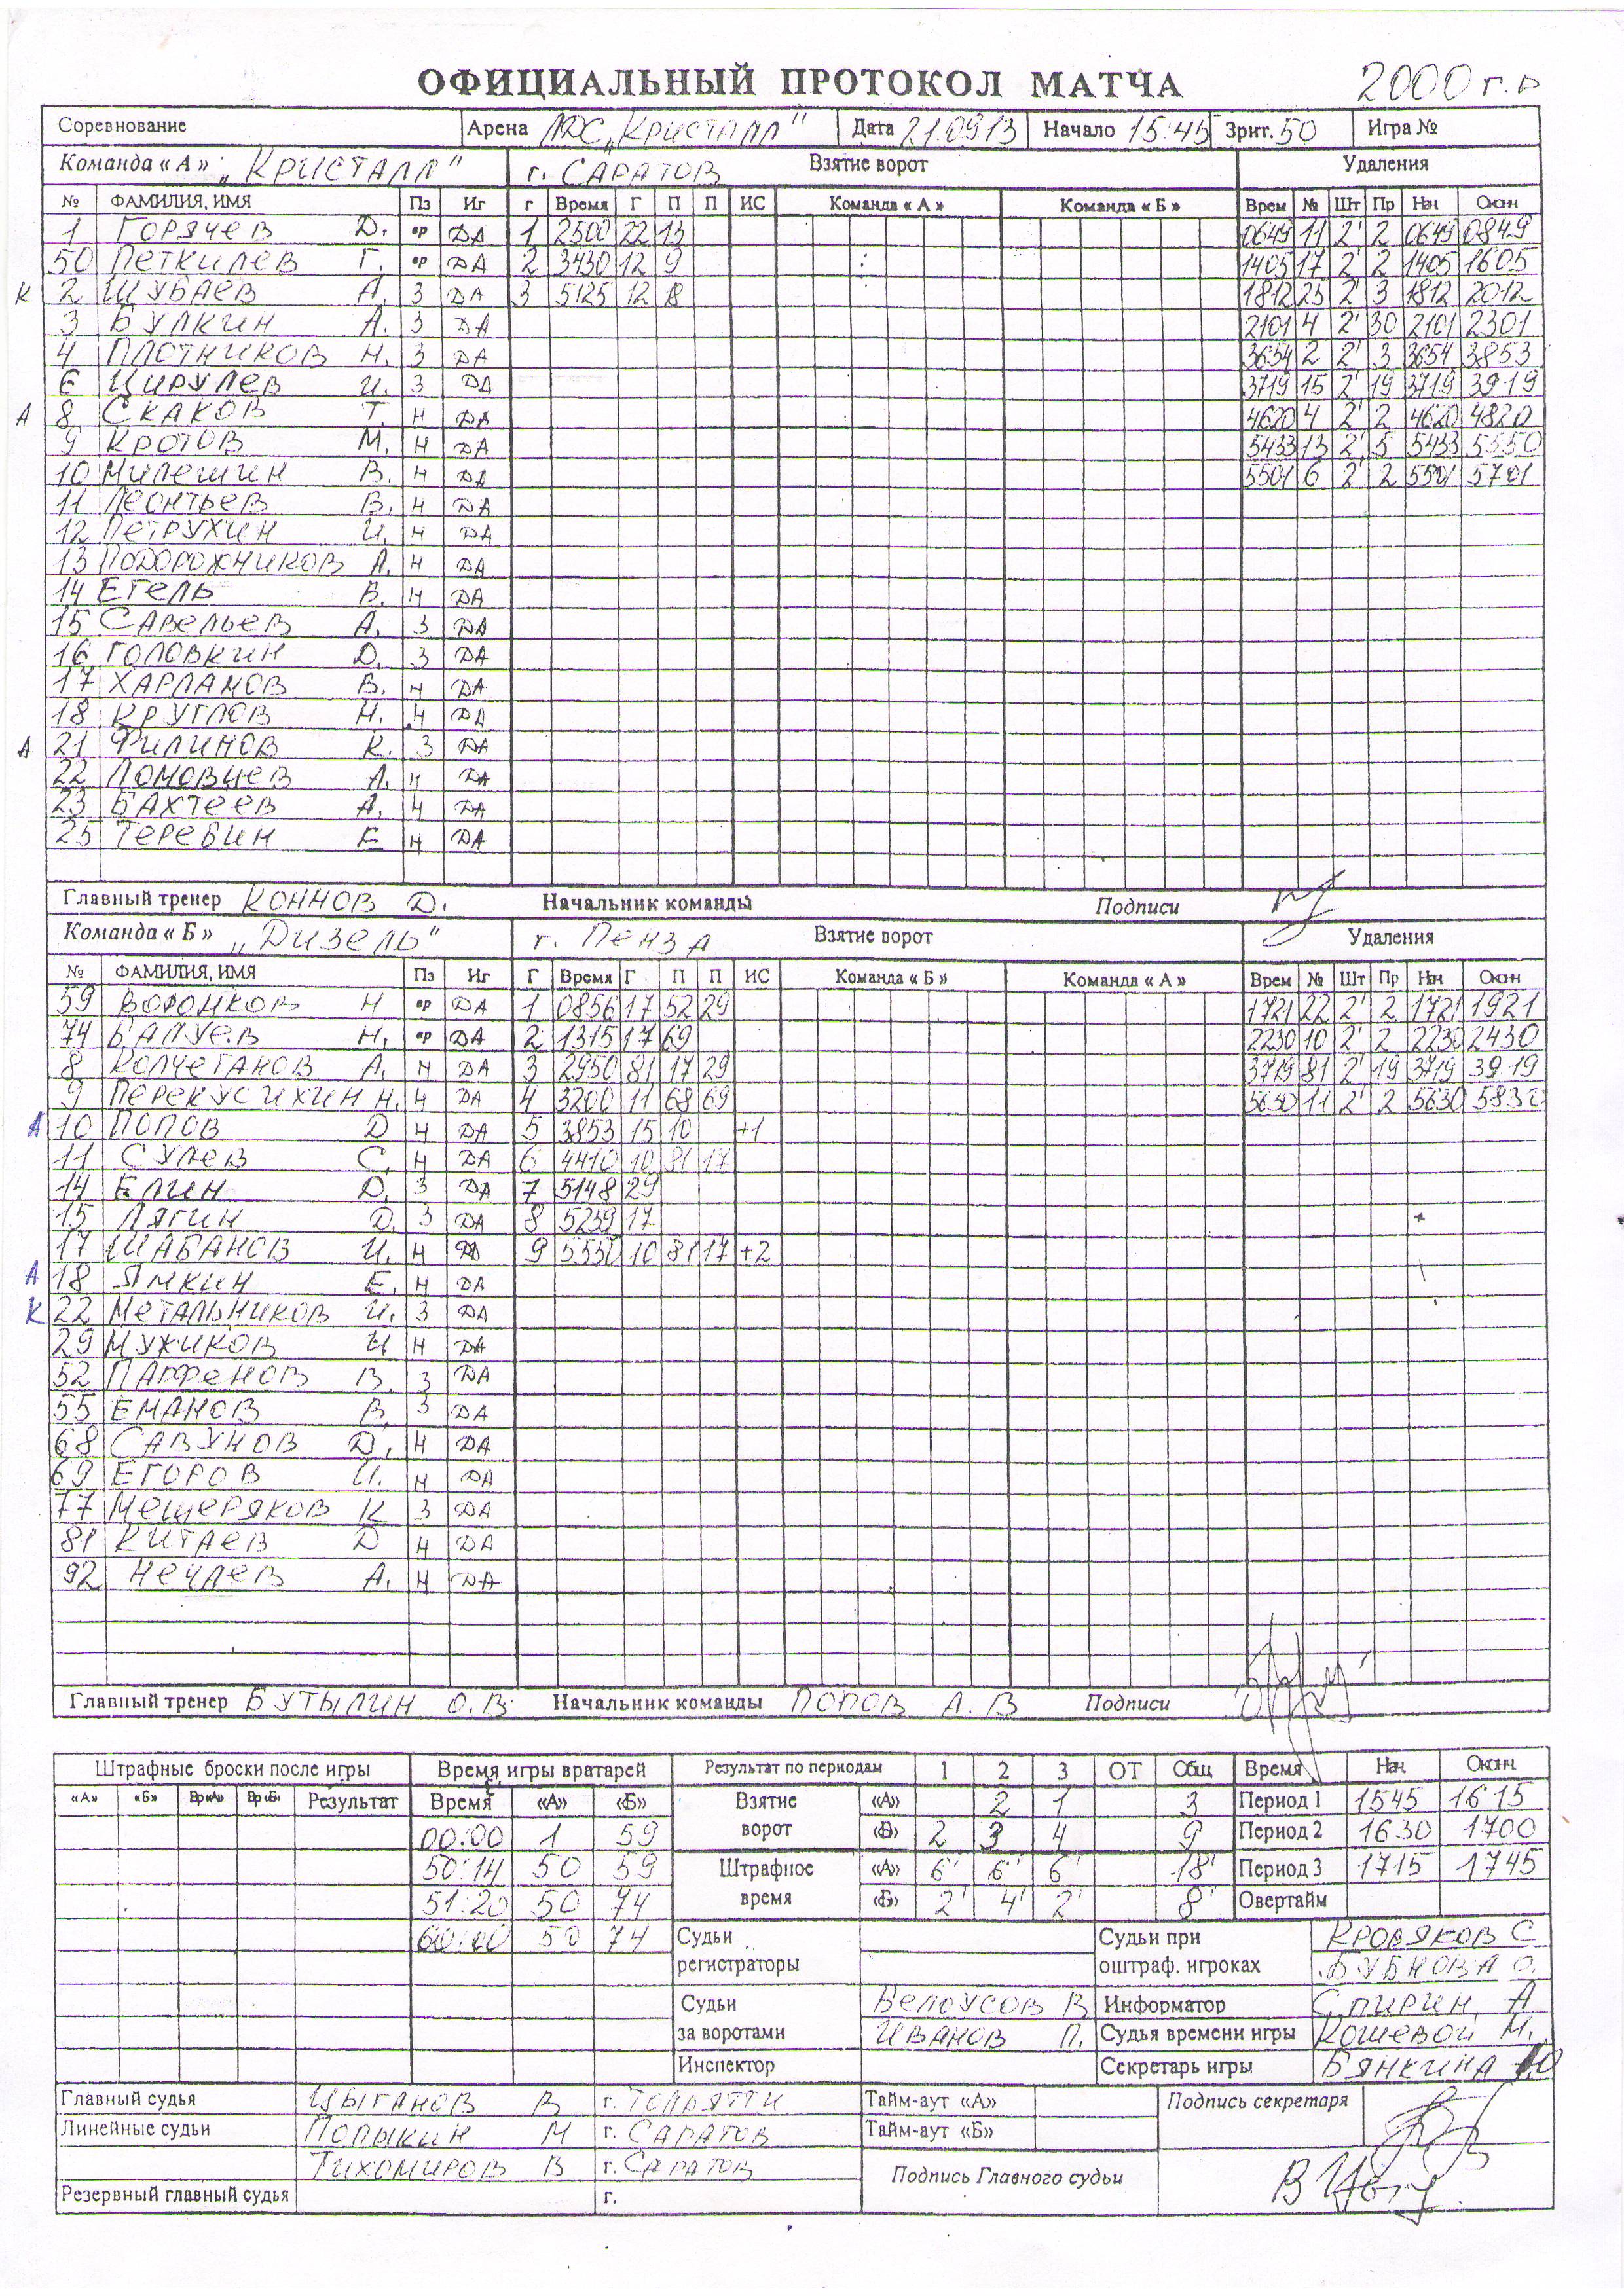 ОФИЦИАЛЬНЫЙ ПРОТОКОЛ МАТЧА 2000 г.р
Соревнование Арена ЛДС „Кристалл" Дата 21.09.13 Начало 15:45 Зрит. 50 Игра №
Команда « А » „Кристалл" г. САРАТОВ Взятие ворот Удаления
№ ФАМИЛИЯ, ИМЯ Пз Иг Г Время Г П П ИС Команда « А » Команда « Б » Врем № Шт Пр Нач. Оконч.
1 Горячев D. вр DA 1 2500 22 13 0649 11 2' 2 0649 0849
50 Петкилев Г. вр DA 2 3430 12 9 1405 17 2' 2 1405 1605
К 2 Шубаев А. З DA 3 5125 12 8 1812 25 2' 3 1812 2012
3 Булкин А. З DA 2101 4 2' 30 2101 2301
4 Плотников Н. З DA 3654 2 2' 3 3654 3853
6 Цирулев И. З DA 3719 15 2' 19 3719 3919
А 8 Скаков Т. Н DA 4620 4 2' 2 4620 4820
9 Кротов М. Н DA 5433 13 2' 5 5433 5550
10 Милешин В. Н DA 5501 6 2' 2 5501 5701
11 Леонтьев В. Н DA
12 Петрухин И. Н DA
13 Подорожников А. Н DA
14 Егель В. Н DA
15 Савельев А. З DA
16 Головкин D. З DA
17 Харламов В. Н DA
18 Круглов Н. Н DA
А 21 Филинов К. З DA
22 Ломовцев А. Н DA
23 Бахтеев А. Н DA
25 Теребин Е Н DA
Главный тренер Коннов D. Начальник команды Подписи
Команда « Б » „Дизель" г. Пенза Взятие ворот Удаления
№ ФАМИЛИЯ, ИМЯ Пз Иг Г Время Г П П ИС Команда « Б » Команда « А » Врем № Шт Пр Нач. Оконч.
59 Воронков Н вр DA 1 0856 17 52 29 1721 22 2' 2 1721 1921
74 Балуев Н. вр DA 2 1315 17 69 2230 10 2' 2 2230 2430
8 Колчеганов А. Н DA 3 2950 81 17 29 3719 81 2' 19 3719 3919
9 Перекусихин Н. Н DA 4 3200 11 68 69 5630 11 2' 2 5630 5830
А 10 Попов D Н DA 5 3853 15 10 +1
11 Сулев С. Н DA 6 4410 10 81 17
14 Елин D. З DA 7 5148 29
15 Лягин D. З DA 8 5259 17
17 Шабанов И. Н DA 9 5550 10 81 17 +2
А 18 Ямкин Е. Н DA
К 22 Метальников И. З DA
29 Мужиков И Н DA
52 Парфенов В. З DA
55 Еманов В. З DA
68 Савунов D. Н DA
69 Егоров И. Н DA
77 Мещеряков К З DA
81 Китаев D Н DA
92 Нечаев А. Н DA
Главный тренер Бутылин О.В. Начальник команды Попов А.В Подписи
Штрафные броски после игры Время игры вратарей Результат по периодам 1 2 3 ОТ Общ Время Нач. Оконч.
«А» «Б» Вр«А» Вр«Б» Результат Время «А» «Б» Взятие ворот «А» 2 1 3 Период 1 1545 1615
00:00 1 59 «Б» 2 3 4 9 Период 2 1630 1700
50:14 50 59 Штрафное время «А» 6' 6' 6' 18' Период 3 1715 1745
51:20 50 74 «Б» 2' 4' 2' 8' Овертайм
60:00 50 74 Судьи регистраторы Судьи при оштраф. игроках Кровяков С
Бубнова О.
Судьи за воротами Белоусов В Информатор Спирин А
Иванов П. Судья времени игры Кошевой М.
Инспектор Секретарь игры Бянкина Ю
Главный судья Цыганов В г. Тольятти Тайм-аут «А» Подпись секретаря
Линейные судьи Полыкин М г. Саратов Тайм-аут «Б»
Тихомиров В г. Саратов Подпись Главного судьи
Резервный главный судья г.